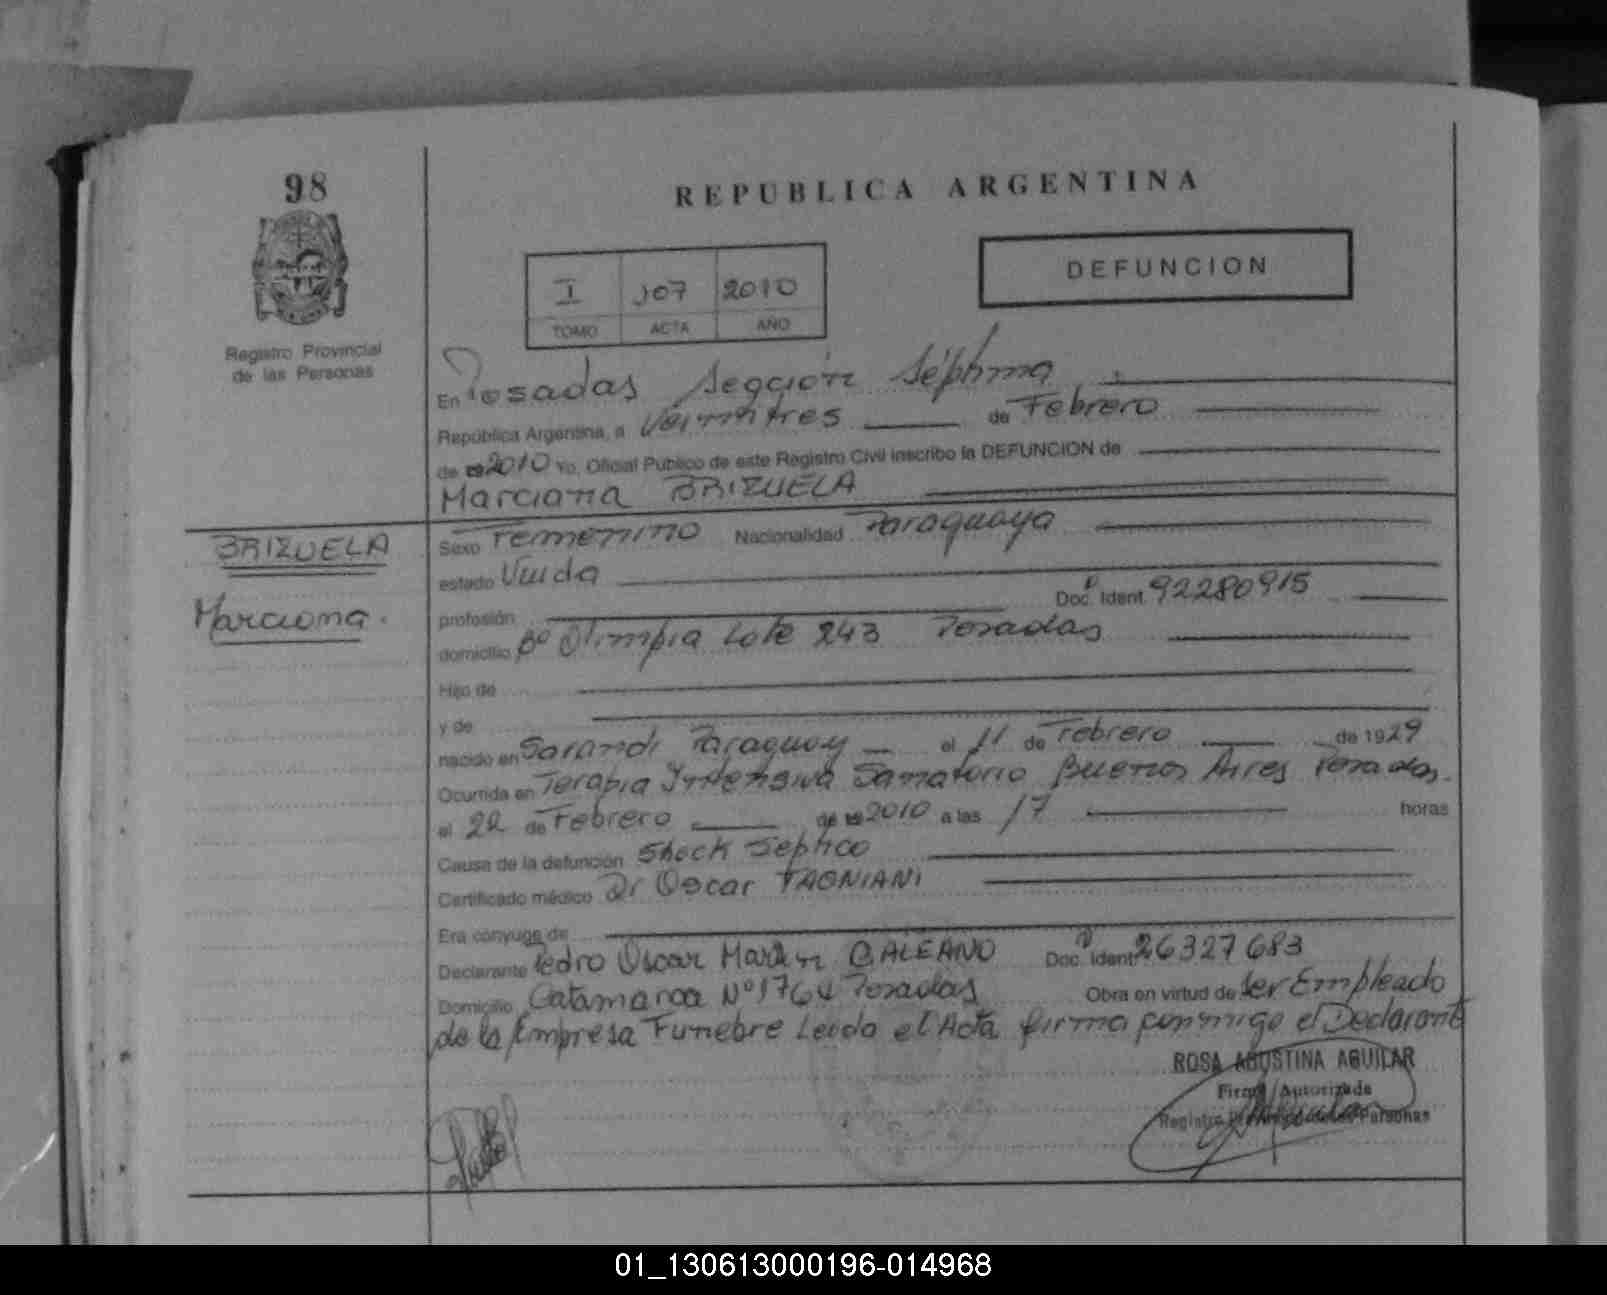 98
REPUBLICA ARGENTINA
Registro Provincial
de las Personas
I 107 2010
TOMO ACTA AÑO
DEFUNCION
En Posadas Sección Séptima
República Argentina, a Veintitres de Febrero
de 2010 Yo, Oficial Público de este Registro Civil inscribo la DEFUNCION de
Marciana BRIZUELA
BRIZUELA
Marciana.
Sexo Femenino Nacionalidad Paraguaya
estado Viuda
profesión Doc. Ident. 92280915
domicilio Bº Olimpia Lote 243 Posadas
Hijo de
y de
nacido en Sarandi Paraguay el 11 de Febrero de 1929
Ocurrida en Terapia Intensiva Sanatorio Buenos Aires Posadas.
el 22 de Febrero de 2010 a las 17 horas
Causa de la defunción Shock Septico
Certificado médico Dr Oscar TAGNIANI
Era cónyuge de
Declarante Pedro Oscar Martin GALEANO Doc. Ident. 26327683
Domicilio Catamarca Nº 1764 Posadas Obra en virtud de ser Empleado
de la Empresa Funebre Leida el Acta firma conmigo el Declarante
ROSA AGUSTINA AGUILAR
Firma Autorizada
Registro Personas
01_130613000196-014968